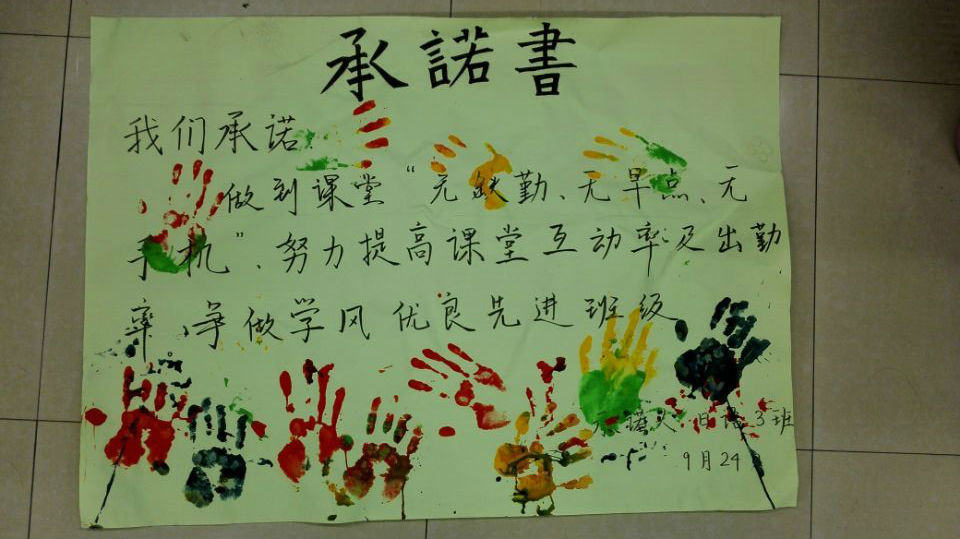 承諾書
我们承诺
做到课堂“无缺勤、无早点、无
手机”、努力提高课堂互动率及出勤
率、争做学风优良先进班级
承诺人:日语3班
9月24